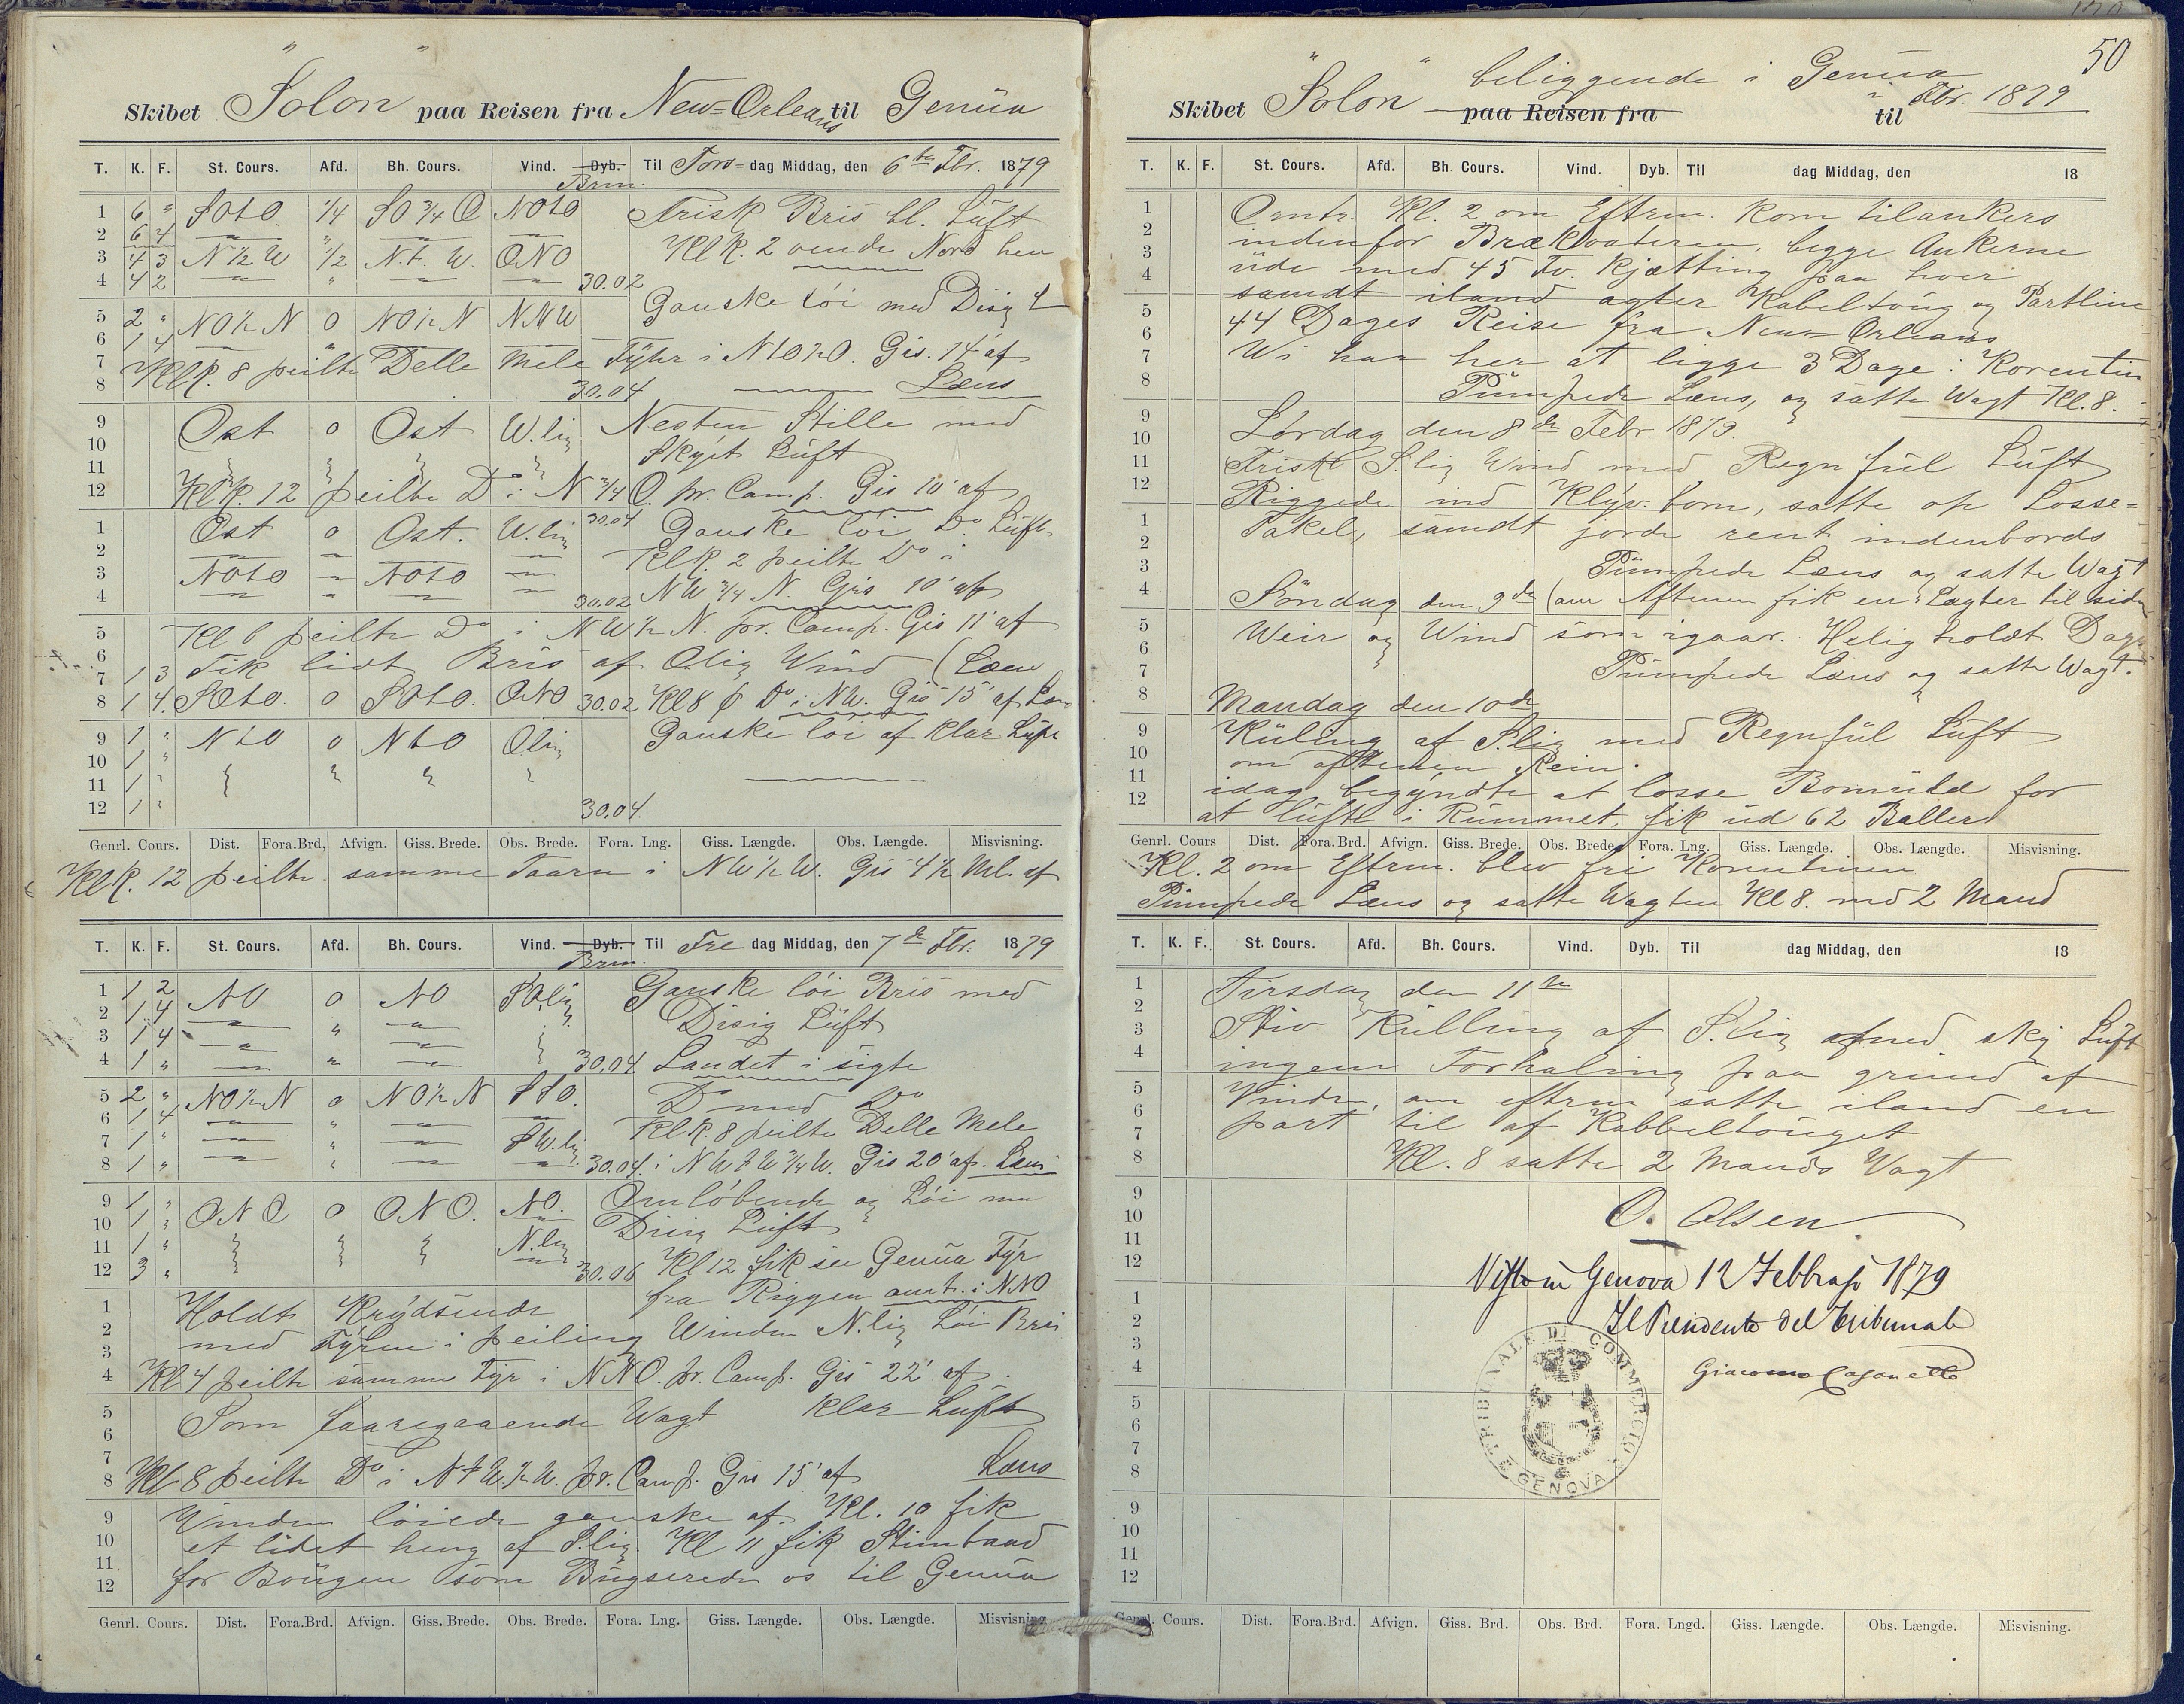 Skibet "Solon" paa Reisen fra New-Orleans til Genüa
T. K. F. St. Cours. Afd. Bh. Cours. Vind. Dyb. Brm. Til Tors-dag Middag, den 6te Fbr. 1879
1 6 " SOtO 1/4 SO 3/4 O NOtO Frisk Bris bl. Lüft
2 6 4 Klk. 2 vende Nord hen
3 4 3 N 1/2 W 1/2 N.t. W. ONO
4 4 2 30.02
5 2 " NO 1/2 N 0 NO 1/2 N NNW Ganske løi med Disig L
6 1 4
7 Klk. 8 peilte Delle Mele Fyhr i NtO 1/2 O. Gis. 14' af
8 30.04 Læns
9 Ost 0 Ost W.lig Nesten Stille med
10 Skyet Lüft
11
12 Klk. 12 peilte Do i N 3/4 O. pr. Camp. Gis 10' af
1 Ost 0 Ost. W.lig 30.04 Ganske løi Do Lüft
2 Klk. 2 peilte Do i
3 NOtO NOtO NW 3/4 N. Gis 10' af
4 30.02
5 Kl. 6 peilte Do i NW 1/2 N. pr. Camp. Gis 11' af
6
7 1 3 Fik lidt Bris af Olig Wind (Læns
8 1 4. SOtO. 0 SOtO. ONO 30.02 Kl 8 p Do i NW. Gis 15' af Læns
9 1 " NtO 0 NtO Olig Ganske løi af klar Lüft
10 1 "
11 1 "
12 1 " 30.04.
Genrl. Cours. Dist. Fora.Brd. Afvign. Giss. Brede. Obs. Brede. Fora. Lng. Giss. Længde. Obs. Længde. Misvisning.
Klk. 12 peilte samme Taarn i NW 1/2 W. Gis 4 1/2 Ml. af
T. K. F. St. Cours. Afd. Bh. Cours. Vind. Dyb. Brm. Til Fre dag Middag, den 7de Fbr. 1879
1 1 2 NO 0 NO SO.lig Ganske løi Bris med
2 1 4 Disig Lüft
3 1 4
4 1 " 30.04. Landet i sigte
5 2 " NO 1/2 N 0 NO 1/2 N StO. Do med Do
6 1 4 Klk. 8 peilte Delle Mele
7 1 " SW.lig
8 1 " 30.04. i NWtW 3/4 W. Gis 20' af. Læns
9 1 " ONO 0 ONO. NO. Omløbende og Løi med
10 1 " Disig Lüft
11 1 " N.lig
12 3 " 30.06 Kl 12 fik see Genüa Fyr
1 Holdt Krydsende fra Riggen omtr. i NNO
2 med Fyren i peiling Winden N.lig Løi Bris
3
4 Kl 4 peilte samme Fyr i NNO. pr. Camp. Gis 22' af.
5 Som faaregaaende Wagt klar Lüft
6
7
8 Kl 8 peilte Do i NtW 1/2 W. pr. Camp. Gis 15' af Læns
9 Vinden løiede ganske af. Kl. 10 fik
10 et lidet heng af S.lig. Kl 11 fik Stimbaad
11
12 for Bougen som Bügserede os til Genüa
Genrl. Cours. Dist. Fora.Brd. Afvign. Giss. Brede. Obs. Brede. Fora. Lng. Giss. Længde. Obs. Længde. Misvisning
50
Skibet "Solon" paa Reisen fra beliggende i Genüa til Fbr. 1879
T. K. F. St. Cours. Afd. Bh. Cours. Vind. Dyb. Til dag Middag, den 18
1 Omtr. Kl. 2 om Eftrm. kom tilankers
2 indenfor Brækvateren, begge Ankerne
3 üde med 45 Fv. Kjætting paa hver
4 samdt iland agter Kabeltoug og Partline
5 44 Dages Reise fra New Orleans
6
7 Wi har her at ligge 3 Dage i Korentin
8 Pümpede Læns, og satte Wagt Kl. 8.
9 Lørdag den 8de Febr. 1879.
10
11 Frisk S.lig Wind med Regnfül Lüft
12 Riggede ind Klyv. bom, satte op Losse-
1 Takel, samdt jorde rent indenbords
2
3 Pümpede Læns og satte Wagt
4 Søndag den 9de (om Aftenen fik en Lægter til siden
5 Weir og Wind som igaar. Helig holdt Dagen
6
7 Pümpede Læns og satte Wagt.
8 Mandag den 10de
9 Küling af S.lig med Regnfül Lüft
10 om aftenen Rein.
11 idag begyndte at losse Bomüld for
12 at lüfte i Rümmet, fik üd 62 Baller
Genrl. Cours Dist. Fora.Brd. Afvign. Giss. Brede. Obs. Brede. Fora. Lng. Giss. Længde. Obs. Længde. Misvisning.
Kl. 2 om Eftrm. blev fri Korentinen
Pümpede Læns og satte Wagten Kl 8. med 2 Mand
T. K. F. St. Cours. Afd. Bh. Cours. Vind. Dyb. Til dag Middag, den 18
1 Tirsdag den 11te
2
3 Stiv Külling af S.lig med sky Lüft
4 ingen Forhaling paa grund af
5 Vinden, om eftrm satte iland en
6
7 part til af Kabbeltouget
8 Kl. 8 satte 2 Mands Vagt
9
10 O. Olsen
11
12 Visto in Genova 12 Febbrajo 1879
1
2 Il Presidente del Tribunale
3
4 Giacomo
TRIBUNALE DI COMMERCIO GENOVA
5
6
7
8
9
10
11
12
Genrl. Cours. Dist. Fora.Brd. Afvign. Giss. Brd. Obs. Brd. Fora. Lngd. Giss. Længde. Obs. Længde. Misvisning.